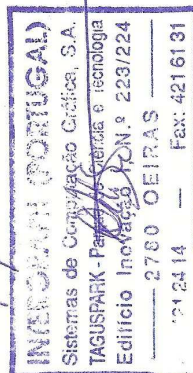 INTERGRAPH (PORTUGAL)
Sistemas de Computação Gráfica, S.A.
TAGUSPARK - Parque de Ciência e Tecnologia
Edifício Inovação I N.º 223/224
2780 OEIRAS
Fax: 4216131